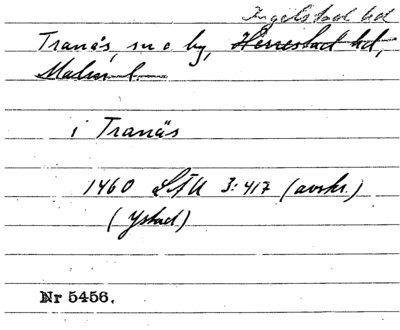 Ingelstad hd
Tranås, sn o by, Herrestad hd,
Malm. l.
i Tranäs
1460 LTU 3:417 (avskr.)
(Ystad)
Nr 5456.